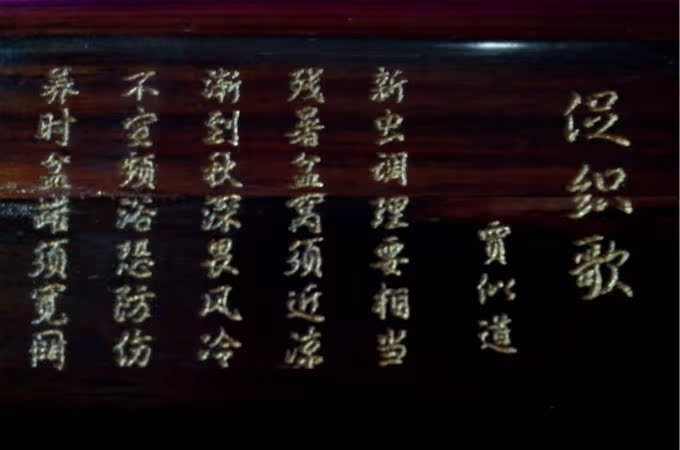 促织歌
贾似道
新虫调理要相当
残暑盆窝须近凉
渐到秋深畏风冷
不宜频浴恐防伤
养时盆诺须宽阔